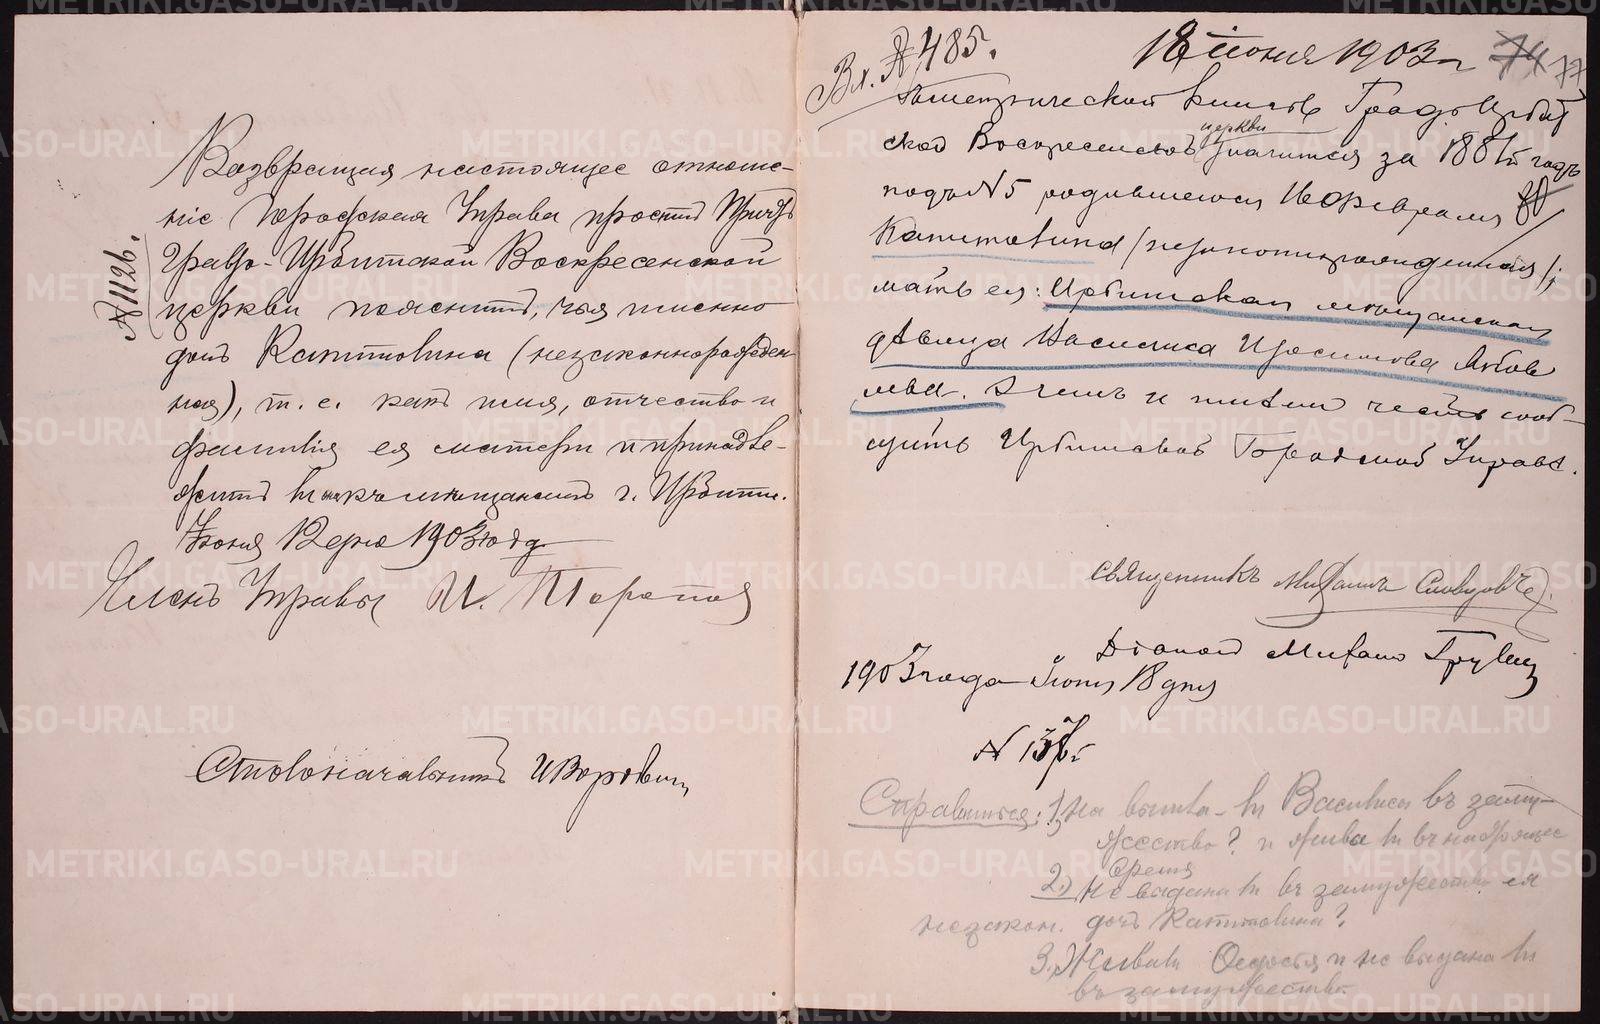 № 1126.
Возвращая настоящее отноше-
ніе Городская Управа проситъ Причтъ
Градо-Ирбитской Воскресенской
церкви пояснить, чья именно
дочь Капитолина (незаконнорожден-
ная), т. е. какъ имя, отчество и
фамилія ея матери и принадле-
житъ ли къ мѣщанамъ г. Ирбити.
Іюня 12 дня 1903 года
Членъ Управы И.
Столоначальникъ
Вх. № 485.
18 іюня 1903 г.
74 77
Въ метрической книгѣ Градо Ирбит
ской Воскресенской церкви значится за 1881й годъ
подъ № 5 родившеюся февраля
Капитолина (незаконнорожденная);
мать ея: Ирбитская мѣщанская
дѣвица Василиса Изосимова
О чемъ и имѣемъ честь сооб-
щить Ирбитской Городской Управѣ.
Священникъ Михаилъ Словцовъ
Діаконъ
1903 года Іюня 18 дня
№ 137
Справиться: 1) Не вышла-ли Василиса въ заму-
жество? и жива ли въ настоящее
время
2.) Не выдана ли въ замужество ея
незакон. дочь Капитолина?
3. Жива ли и не выдана ли
въ замужество